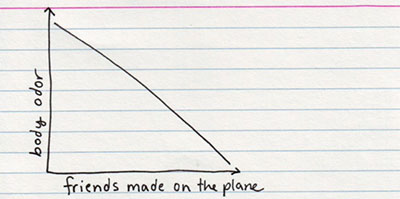 body odor
friends made on the plane